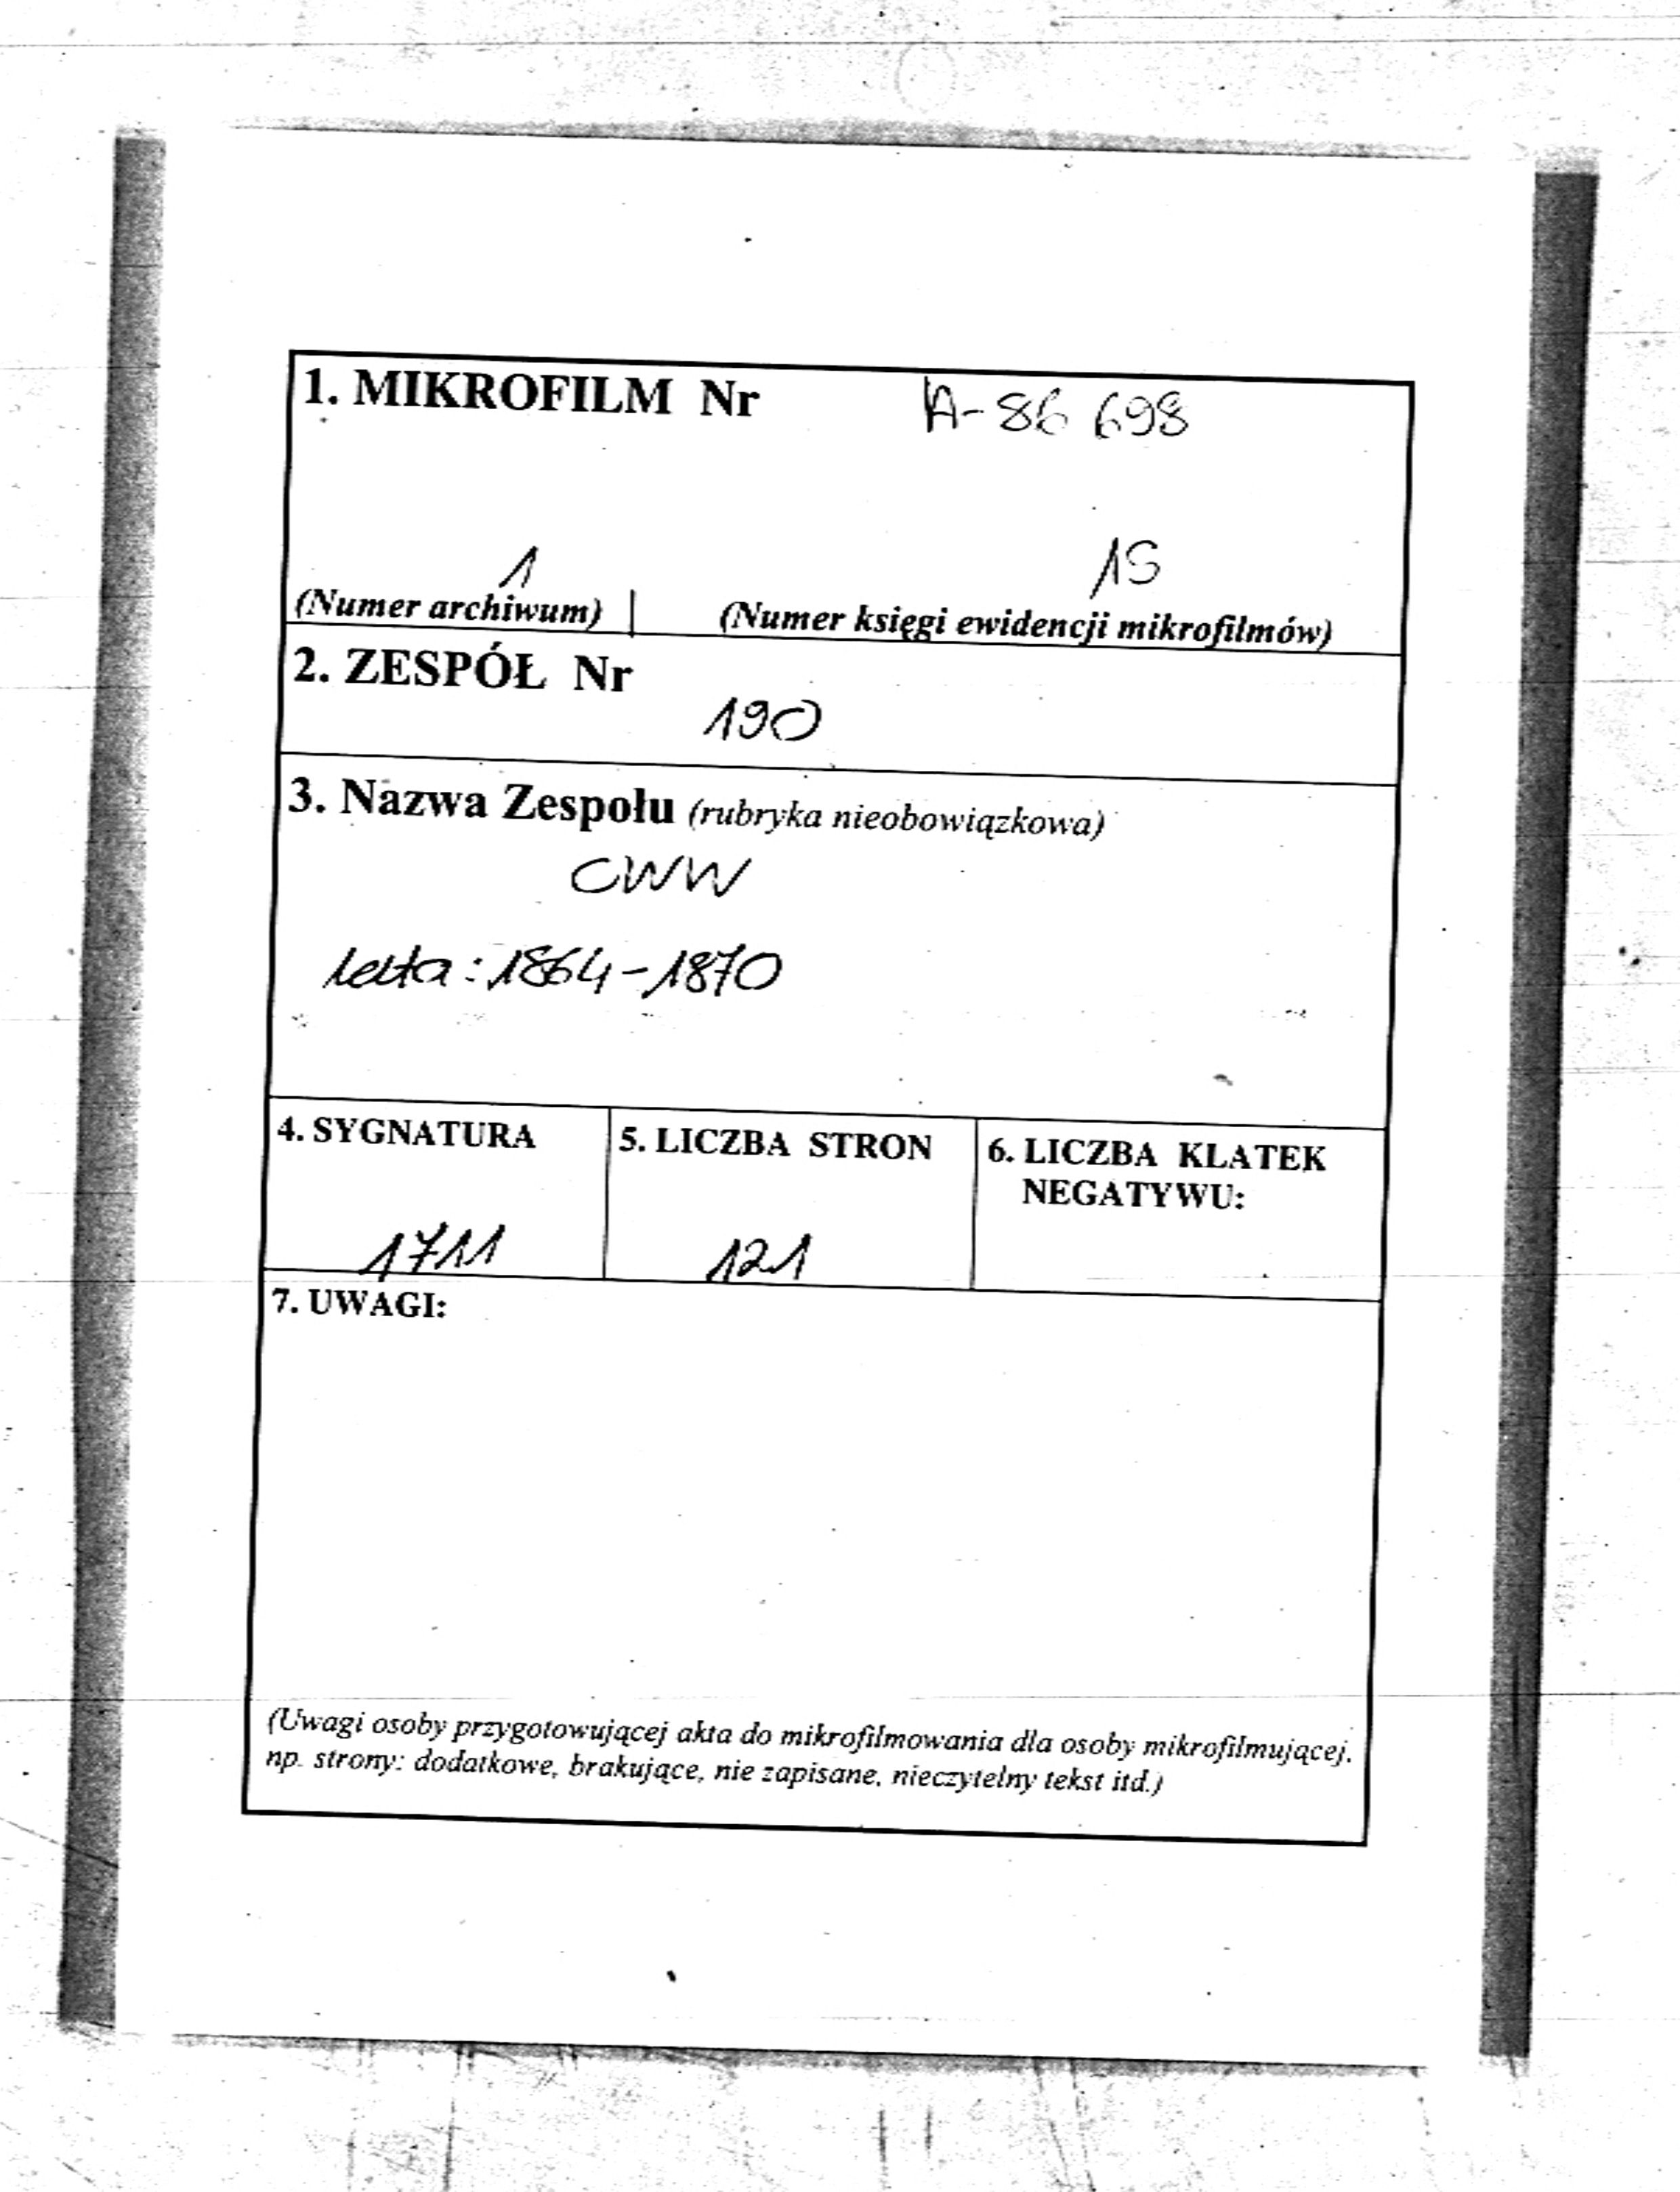 1. MIKROFILM Nr A-86 698
1 15
(Numer archiwum) (Numer księgi ewidencji mikrofilmów)
2. ZESPÓŁ Nr
190
3. Nazwa Zespołu (rubryka nieobowiązkowa)
CWW
lata: 1864-1870
4. SYGNATURA 5. LICZBA STRON 6. LICZBA KLATEK
NEGATYWU:
1711 121
7. UWAGI:
(Uwagi osoby przygotowującej akta do mikrofilmowania dla osoby mikrofilmującej,
np. strony: dodatkowe, brakujące, nie zapisane, nieczytelny tekst itd.)